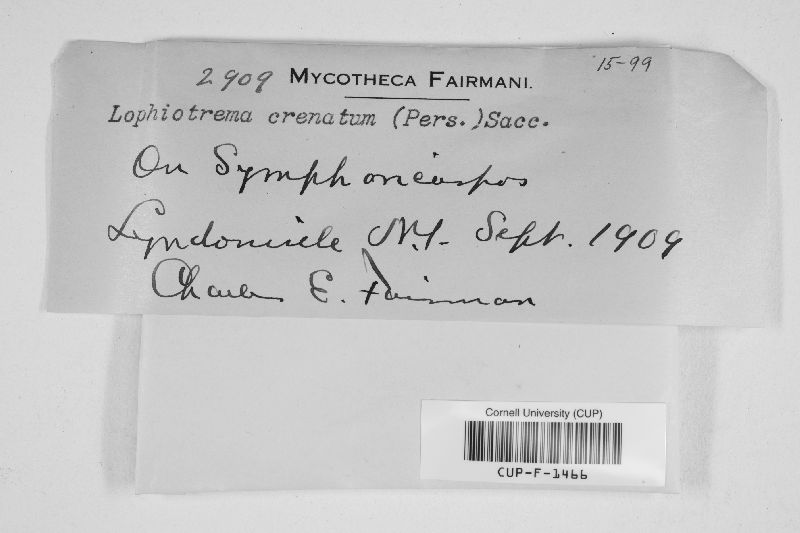 2909 MYCOTHECA FAIRMANI. 15-99
Lophiotrema crenatum (Pers.)Sacc.
On Symphoricarpos
Lyndonville N.Y. Sept. 1909
Charles E. Fairman
Cornell University (CUP)
CUP-F-1466